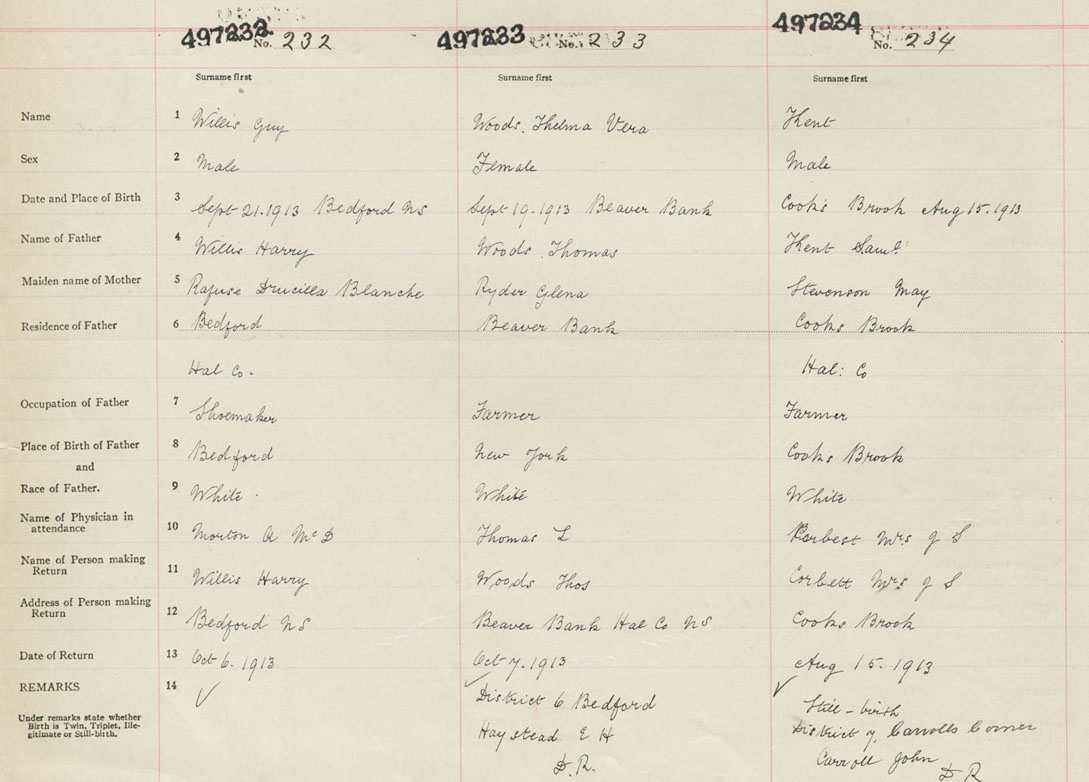 497232 No. 232 497233 No. 233 497234 No. 234
Surname first Surname first Surname first
Name 1 Willis Guy Woods, Thelma Vera Kent
Sex 2 Male Female Male
Date and Place of Birth 3 Sept 21.1913 Bedford NS Sept 19.1913 Beaver Bank Cooks Brook Aug 15.1913
Name of Father 4 Willis Harry Woods Thomas Kent Saml.
Maiden name of Mother 5 Rafuse Drucilla Blanche Ryder Glena Stevenson May
Residence of Father 6 Bedford Beaver Bank Cooks Brook
Hal Co. Hal: Co
Occupation of Father 7 Shoemaker Farmer Farmer
Place of Birth of Father 8 Bedford New York Cooks Brook
and
Race of Father. 9 White. White White
Name of Physician in
attendance 10 Morton A McD Thomas L Mrs J S
Name of Person making
Return 11 Willis Harry Woods Thos Corbett Mrs J S
Address of Person making
Return 12 Bedford NS Beaver Bank Hal Co NS Cooks Brook
Date of Return 13 Oct 6. 1913 Oct 7. 1913 Aug 15. 1913
REMARKS 14 ✓ ✓ District 6 Bedford ✓ Still-birth
Under remarks state whether
Birth is Twin, Triplet, Ille-
gitimate or Still-birth.
Haystead E H District 7. Carrolls Corner
D.R. Carroll John
D R